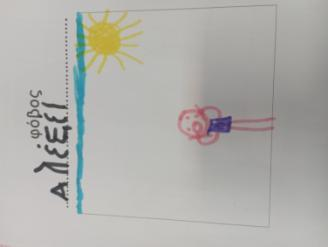 φόβος
Αλέξει